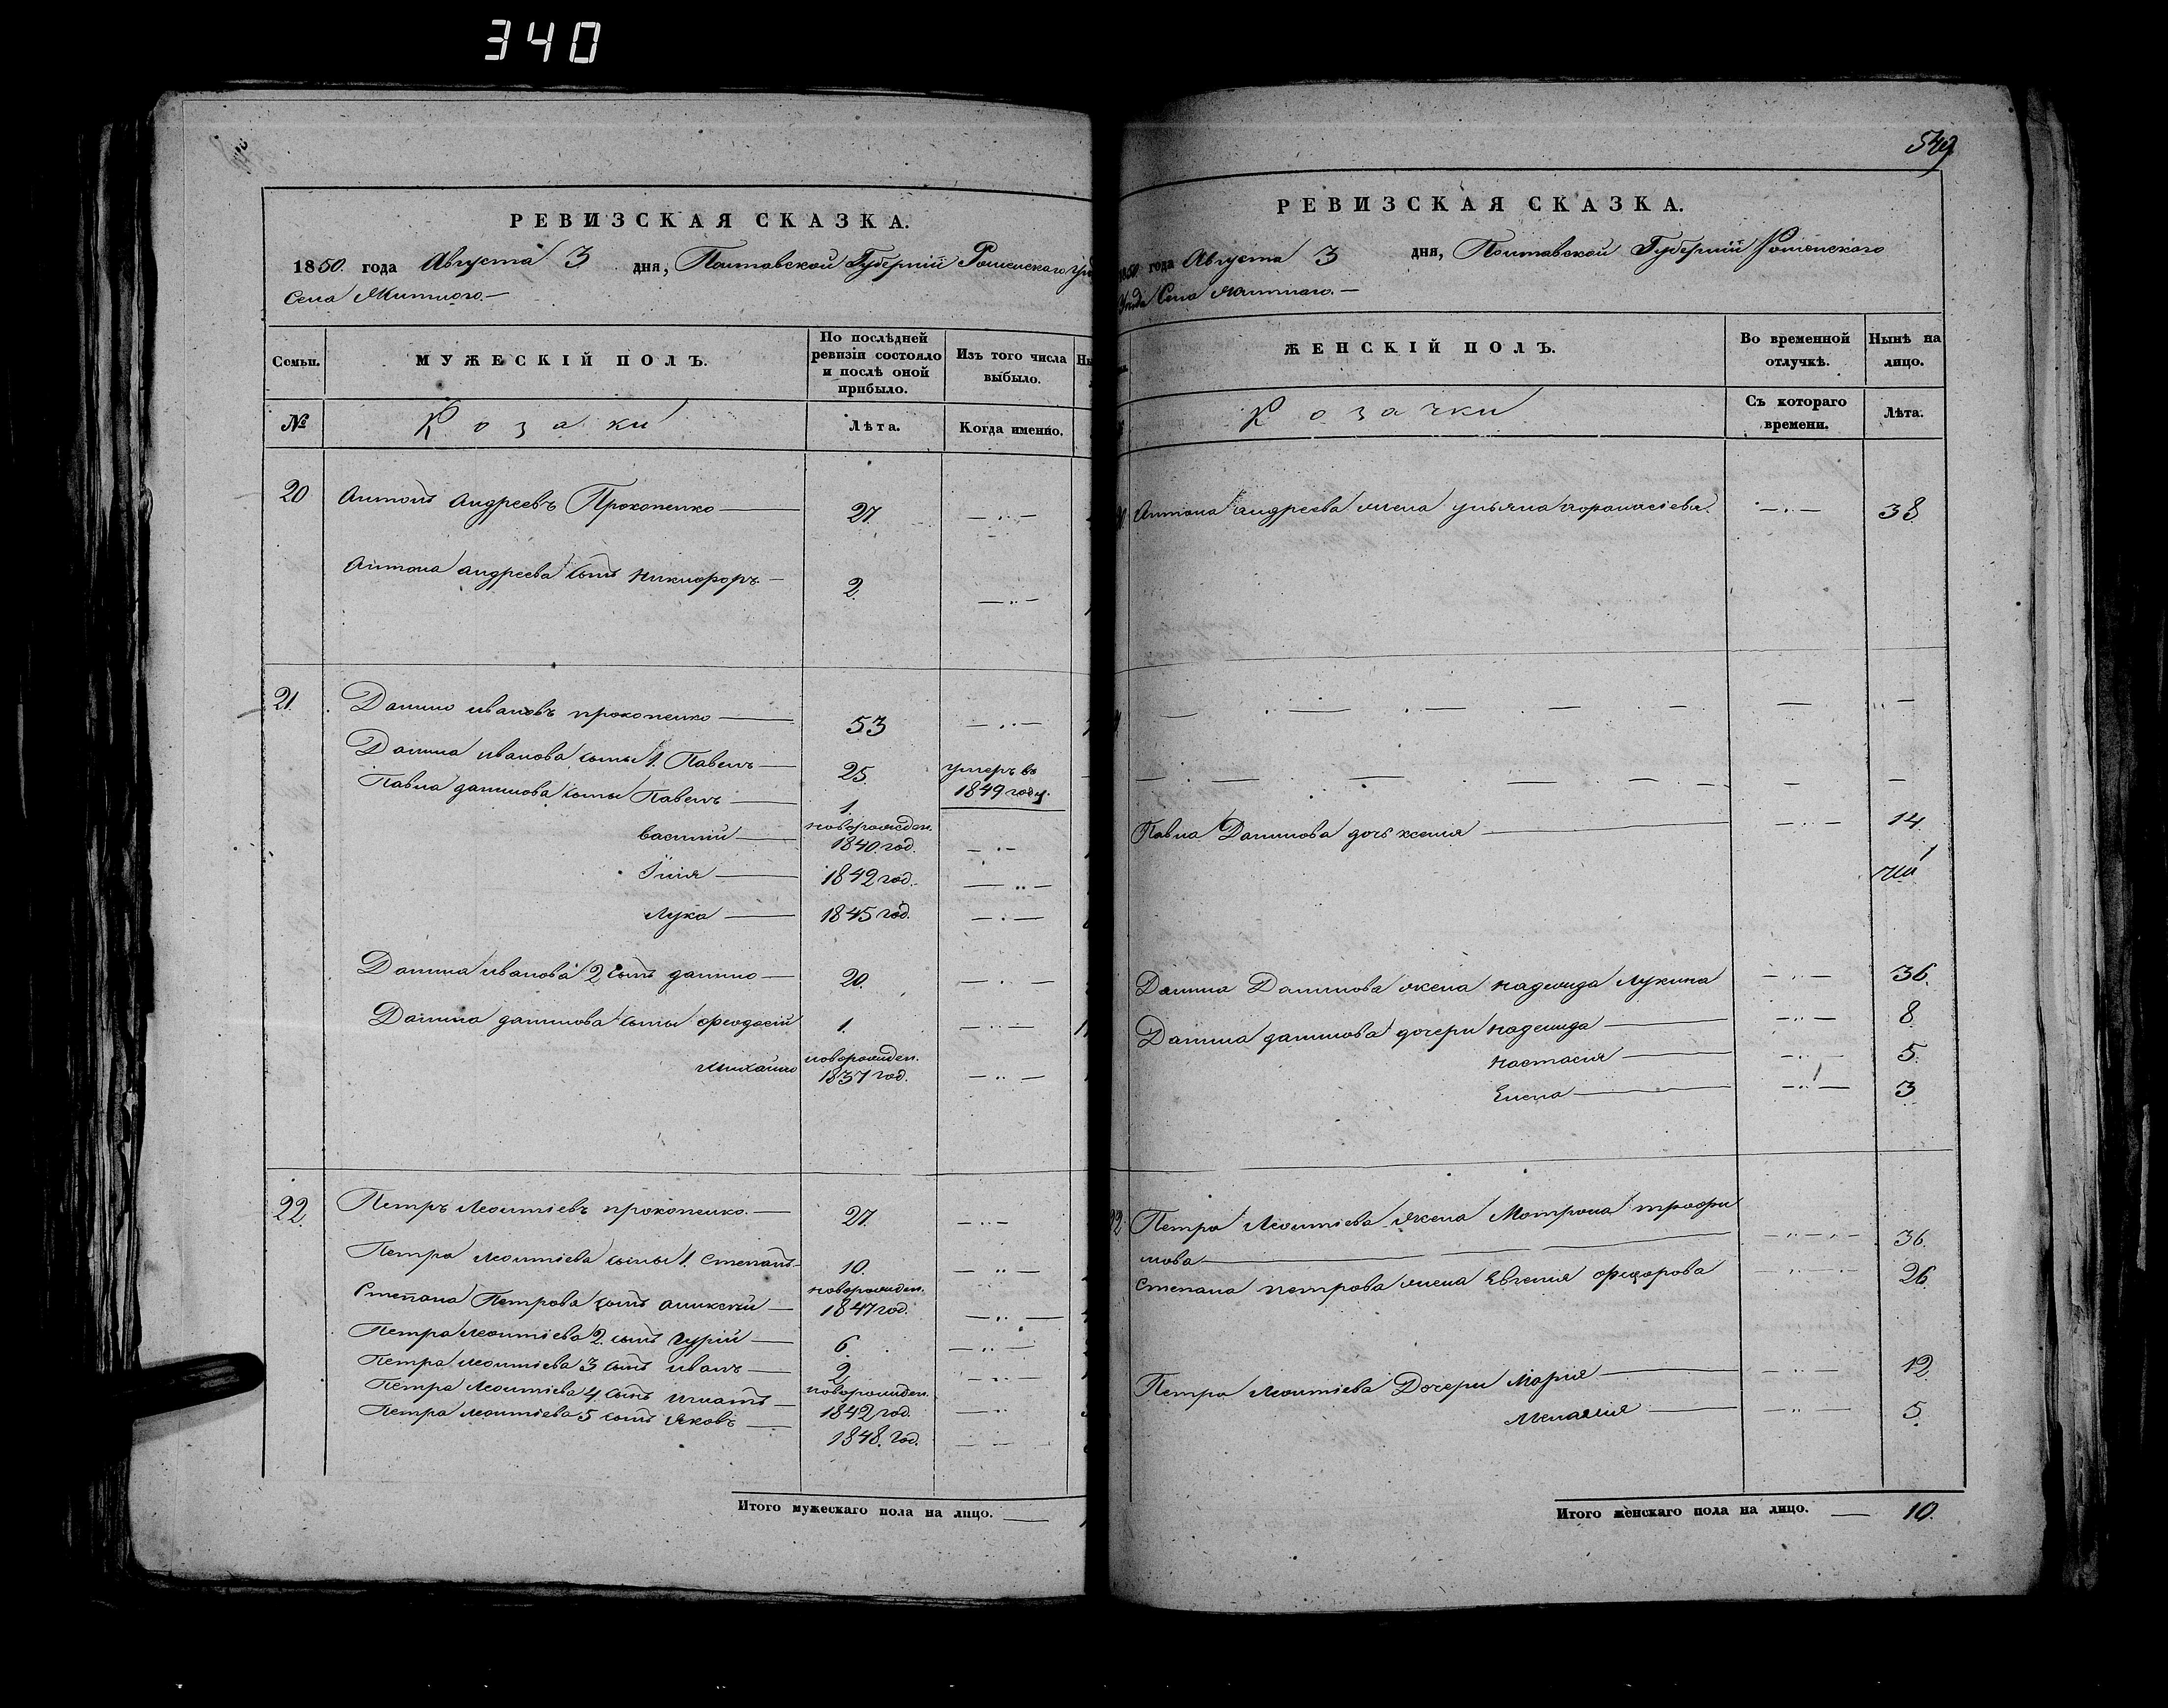 340
РЕВИЗСКАЯ СКАЗКА.
1850 года Августа 3 дня, Полтавской Губерніи Роменскаго
Села Житнаго.
Семьи. МУЖЕСКІЙ ПОЛЪ. По послѣдней ревизіи состояло и послѣ оной прибыло. Изъ того числа выбыло.
№ Козаки Лѣта. Когда именно.
20 Антонъ Андреевъ Прокопенко 27.
Антона Андреева сынъ Никифоръ 2.
21. Данило Ивановъ Прокопенко 53
Данила Иванова сыны 1. Павелъ 25. умеръ въ 1849 году.
Павла Данилова сыны Павелъ 1.
Василий новорожден. 1840 год.
Илія 1842 год.
Лука 1845 год.
Данила Иванова 2 сынъ Данило 20.
Данила Данилова сыны Феодосій 1.
Михайло новорожден. 1837 год.
22. Петръ Леонтіевъ Прокопенко. 27.
Петра Леонтіева сыны 1. Степанъ 10.
Степана Петрова сынъ новорожден. 1847 год.
Петра Леонтіева 2. сынъ Гурій 6.
Петра Леонтіева 3 сынъ Иванъ 2
Петра Леонтіева 4 сынъ Игнатъ новорожден. 1842 год.
Петра Леонтіева 5 сынъ Яковъ 1848. год.
Итого мужескаго пола на лицо.
549
РЕВИЗСКАЯ СКАЗКА.
1850 года Августа 3 дня, Полтавской Губерніи Роменскаго
Уезда Села Житнаго.
ЖЕНСКІЙ ПОЛЪ. Во временной отлучкѣ. Нынѣ на лицо.
Козачки Съ котораго времени. Лѣта.
Антона Андреева жена Ульяна Афанасіева. 38.
Павла Данилова дочь Ксенія 14.
Данила Данилова жена Надежда Лукина 36.
Данила Данилова дочери Надежда 8.
Настасія 5.
Елена 3
22 Петра Леонтіева жена Матрона Трофи
мова 36.
Степана Петрова жена Евгенія Федорова 26
Петра Леонтіева Дочери Марія 12
Меланія 5.
Итого женскаго пола на лицо. 10.